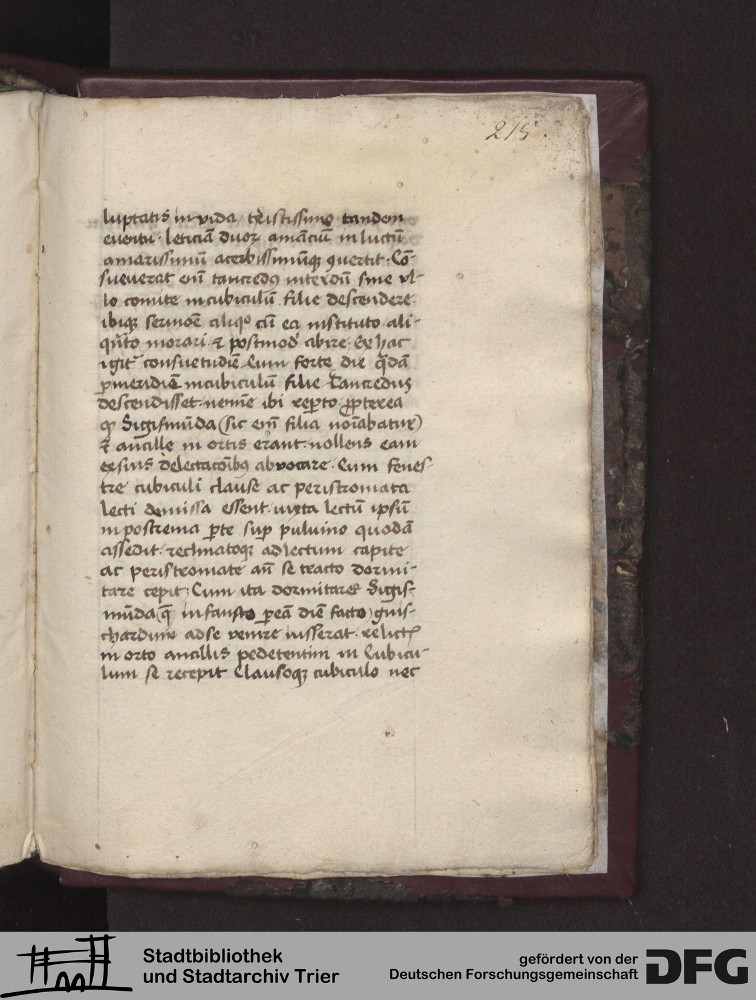 215.
luptatis invida, tristissimo tandem
eventu. leticiā duoꝝ amanciū in luctū
amarissimū acerbissimūqꝫ ꝯvertit. Cō-
sueverat eni tancredꝰ interdū sine vl-
lo comite in cubiculū filie descendere.
ibiqꝫ sermoē aliqͦ cū ea instituto. ali-
qn̄to morari & postmodͫ abire. Ex hac
igit consuetudiē Cum forte die qͣdā
pͦmeridiē in cubiculū filie Tancredus
descendisset. nemīe ibi reꝑto ꝓpterea
qꝫ Sigismūda (sic eni filia noīabatur)
& ancille in ortis erant. nollens eam
ex suis delectacōibꝰ abvocare. Cum fenes-
tre cubiculi clause ac peristromata
lecti demissa essent. iuxta lectū ipsū
in postrema ꝑte suꝑ pulvino quodā
assedit. reclinatoqꝫ ad lectum capite
ac peristromate an̄ se tracto dormi-
tare cepit; Cum ita dormitaret Sigis-
mūda (q̄ infausto ꝑ eā diē facto) guis-
chardum ad se venire iusserat. relictꝭ
in orto ancillis pedetentim in Cubicu-
lum se recepit Clausoqꝫ cubiculo nec
Stadtbibliothek
und Stadtarchiv Trier
gefördert von der
Deutschen Forschungsgemeinschaft
DFG